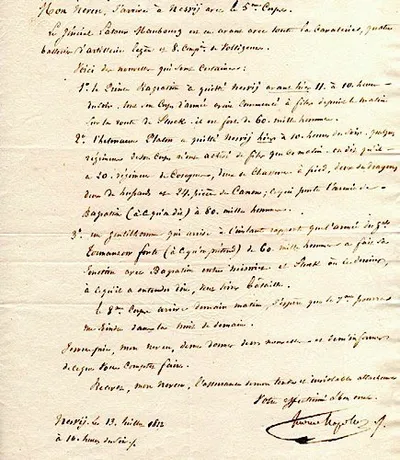 Mon neveu, j'arrive à Nesvij avec le 5me Corps.
Le Général Latour Maubourg est en avant avec toute la Cavalerie, quatre
batteries d'artillerie légère et 8 Compies de Voltigeurs.
Voici des nouvelles qui sont certaines:
1° le Prince Bagration a quitté Nesvij avant hier 11 à 10 heures
du soir. tout son Corps d'armée avait commencé à filer depuis le matin
sur la route de Slutsk. il est fort de 60 mille hommes.
2° l'hetmann Platow a quitté Nesvij hier à 10 heures du soir, quelques
régimens de son Corps n'ont achevé de filer que ce matin. on dit qu'il
a 20 régimens de Cosaques, deux de Chasseurs à pied, deux de dragons,
deux de husards et 24 pièces de Canon; ce qui porte l'armée de
Bagration (à ce qu'on dit) à 80 mille hommes.
3° un gentilhomme qui arrive à l'instant rapporte que l'armée du Gal
forte (à ce qu'on prétend) de 60 mille hommes a fait sa
jonction avec Bagration entre et Slutsk où ce dernier,
à ce qu'il a entendu dire, veut livrer bataille.
le 8me Corps arrive demain matin, j'espère que le 7me pourra
me joindre dans la nuit de demain.
Je vous prie, mon neveu, de me donner de vos nouvelles et de m'informer
de ce que vous comptez faire.
Recevez, mon neveu, l'assurance de mon tendre et inviolable attachement
Votre affectionné
Nesvij le 13 Juillet 1812
à 10 heures du soir